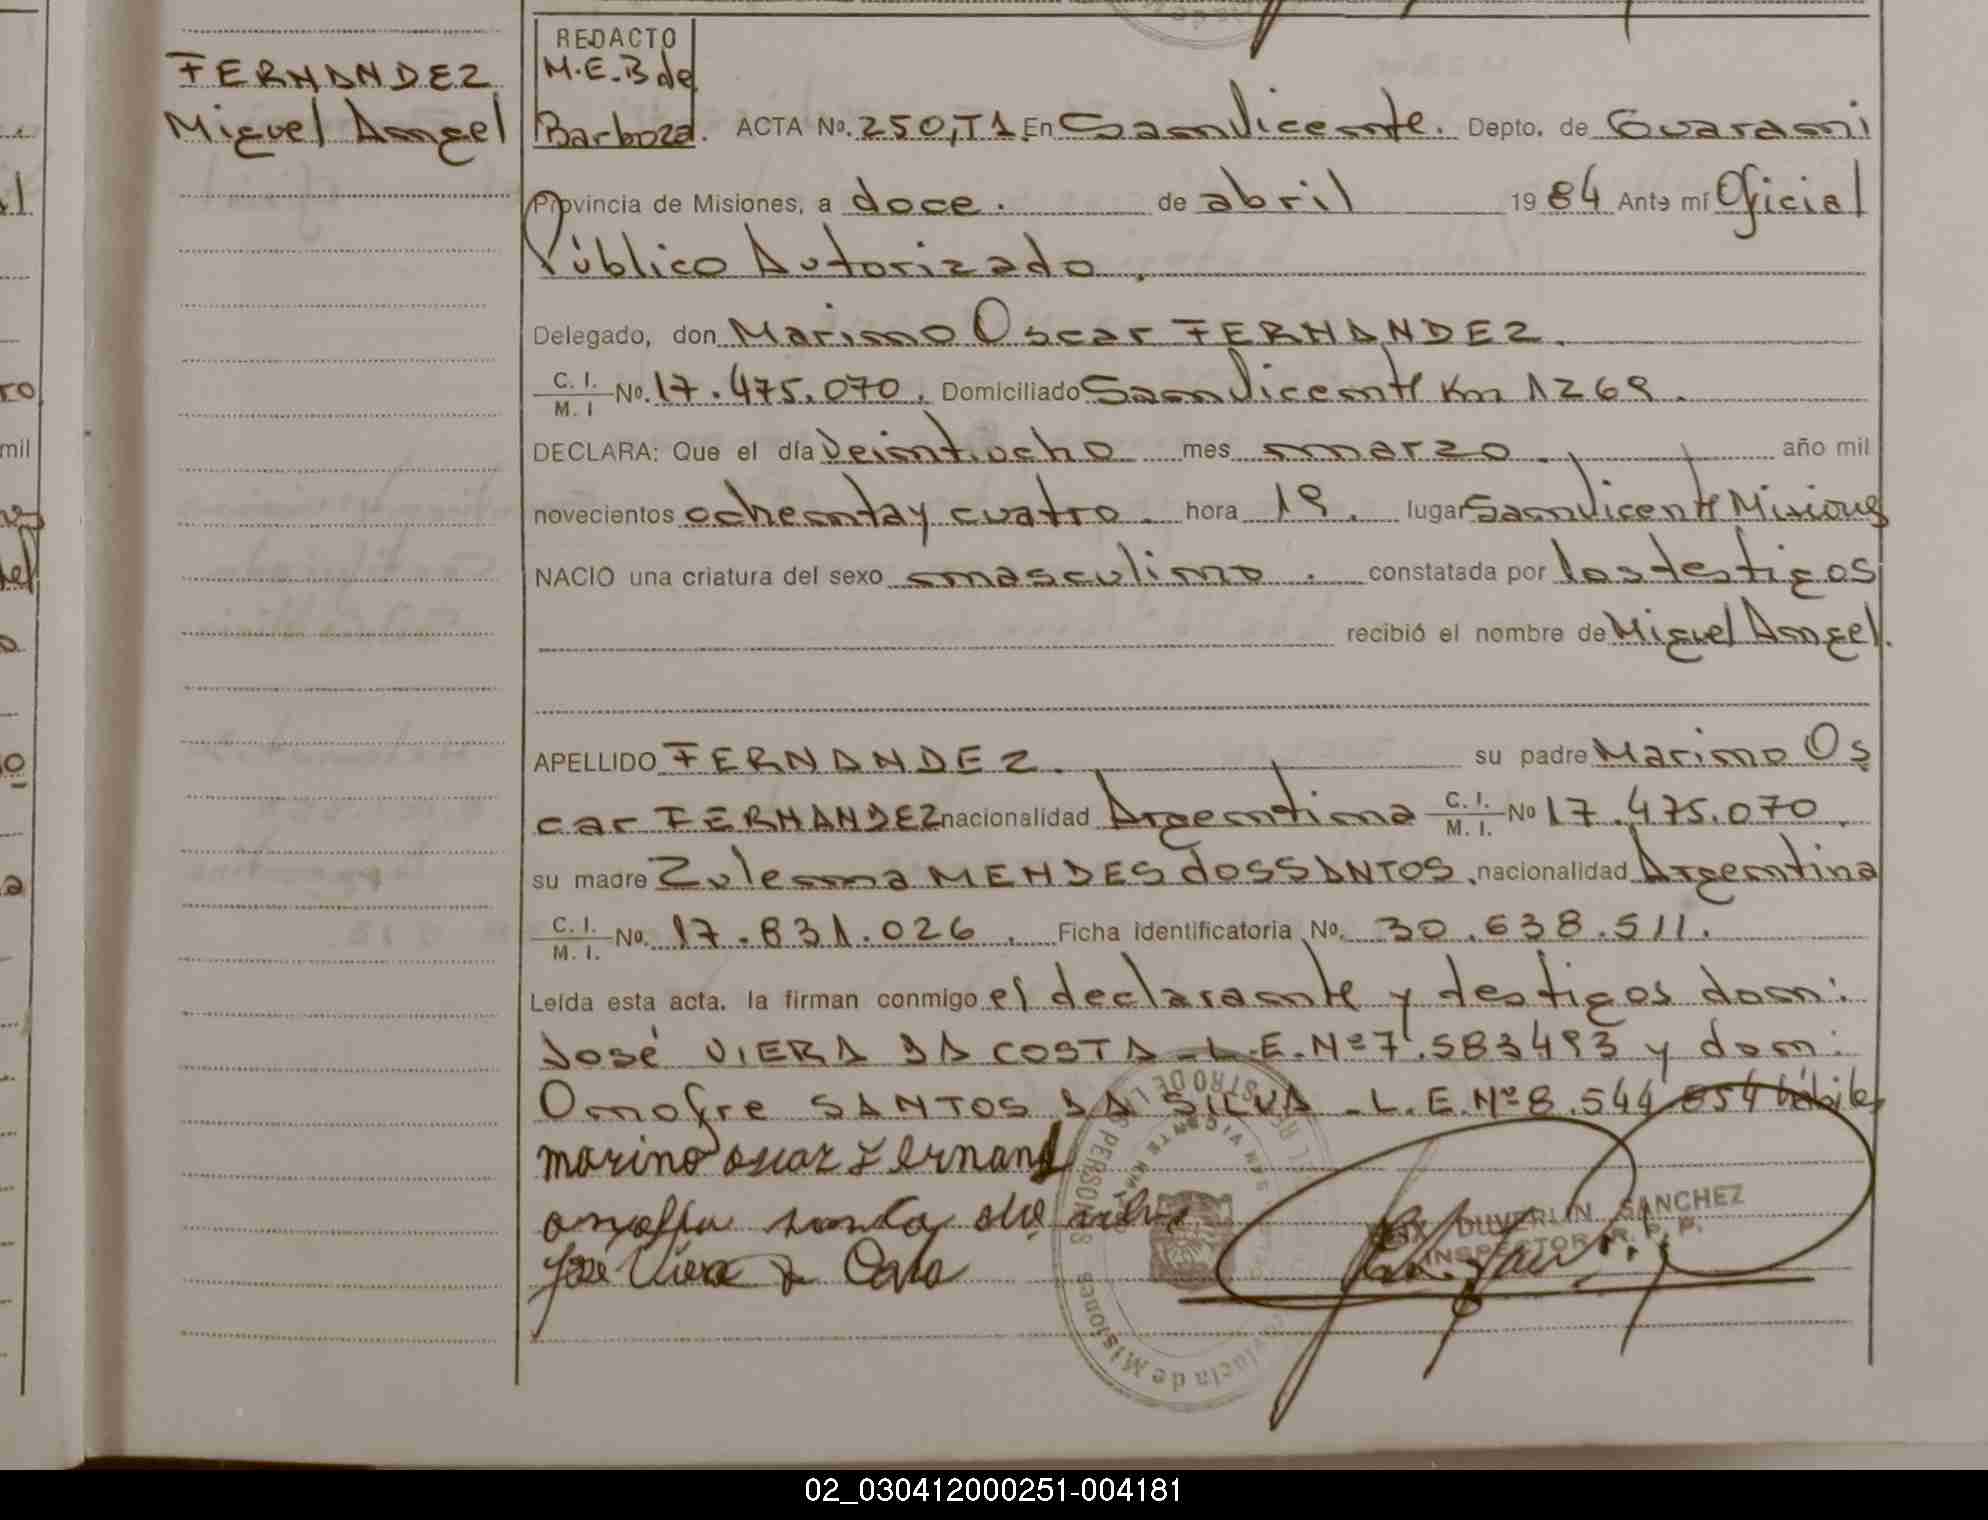 FERNANDEZ
Miguel Angel
REDACTO
M.E.B de
Barboza.
ACTA No. 250,T1. En San Vicente. Depto. de Guarani
Provincia de Misiones, a doce. de abril 1984 Ante mí Oficial
Público Autorizado.
Delegado, don Marino Oscar FERNANDEZ.
C. I. / M. I No. 17.475.070. Domiciliado San Vicente Km 1269.
DECLARA: Que el día veintiocho mes marzo. año mil
novecientos ochenta y cuatro. hora 19. lugar San Vicente Misiones
NACIO una criatura del sexo masculino. constatada por los testigos
recibió el nombre de Miguel Angel.
APELLIDO FERNANDEZ. su padre Marino Os
car FERNANDEZ nacionalidad Argentina C. I. / M. I. No 17.475.070.
su madre Zulema MENDES dos SANTOS. nacionalidad Argentina
C. I. / M. I. No. 17.831.026. Ficha identificatoria No. 30.638.511.
Leída esta acta. la firman conmigo el declarante y testigos don:
José VIERA DA COSTA - L.E.Nº 7.583493 y don:
Onofre SANTOS DA SILVA - L.E.Nº 8.544 854 hábiles
marino oscar Fernand
José Viera da Costa
DUVERLIN SANCHEZ
INSPECTOR R. P. P.
Provincia de Misiones
02_030412000251-004181